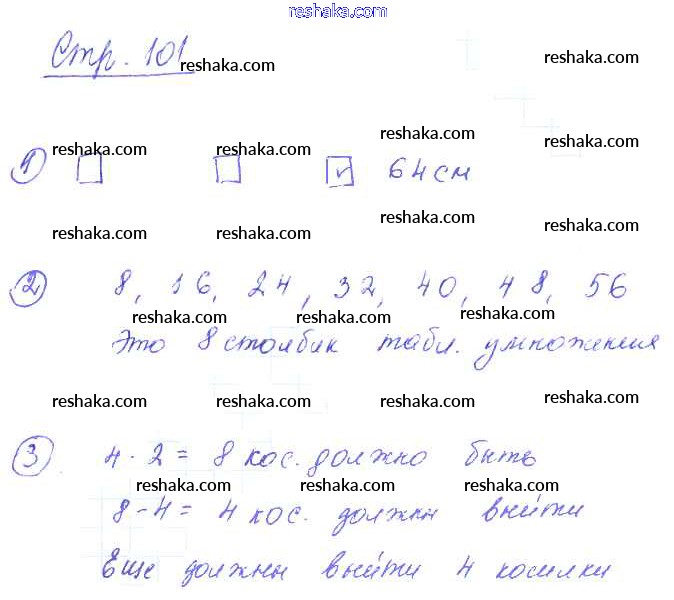 reshaka.com
Стр. 101
reshaka.com reshaka.com
reshaka.com reshaka.com reshaka.com reshaka.com
1 64 см
reshaka.com reshaka.com reshaka.com reshaka.com
2 8, 16, 24, 32, 40, 48, 56
reshaka.com reshaka.com reshaka.com
Это 8 столбик табл. умножения
reshaka.com reshaka.com reshaka.com reshaka.com
3 4 · 2 = 8 кос. должно быть
reshaka.com reshaka.com reshaka.com
8 - 4 = 4 кос. должны выйти
Еще должны выйти 4 косилки